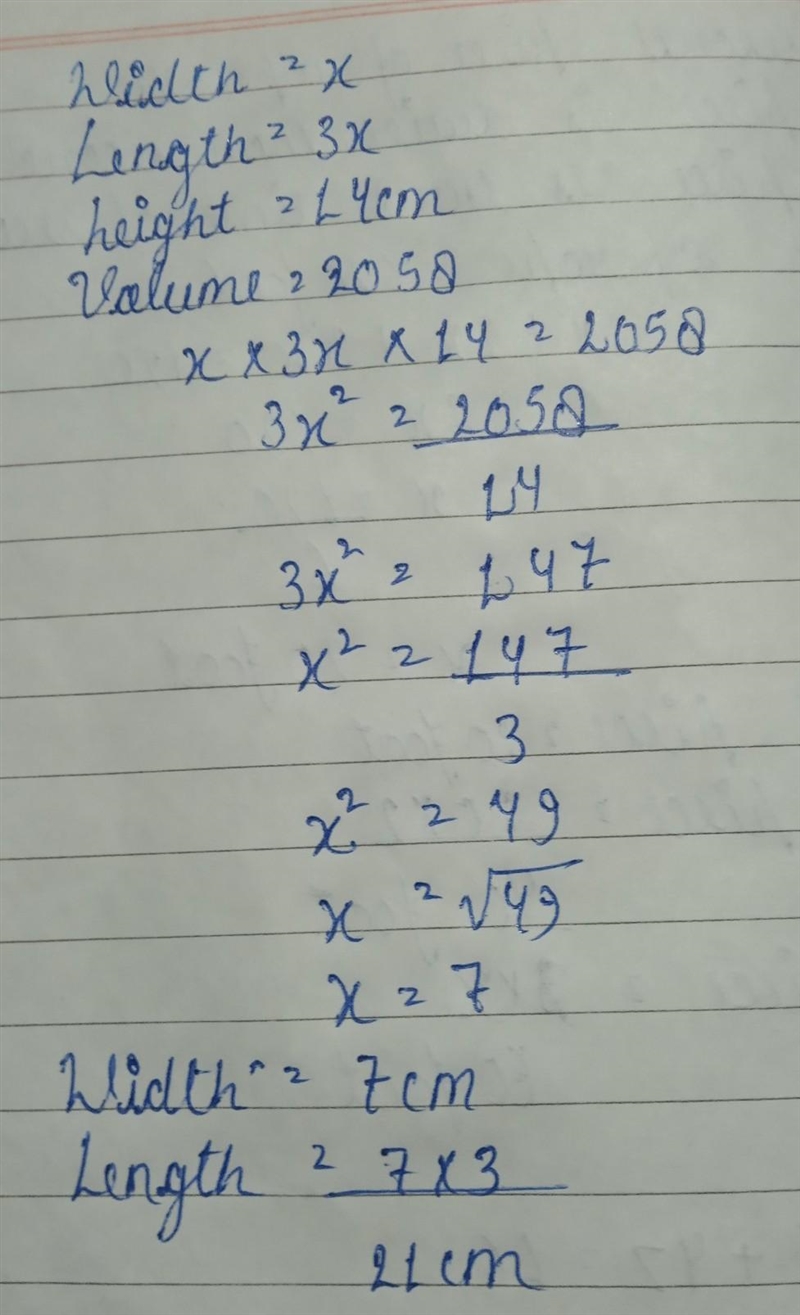 Width = x
Length = 3x
height = 14cm
Volume = 2058
x × 3x × 14 = 2058
3x² = 2058
14
3x² = 147
x² = 147
3
x² = 49
x = √49
x = 7
Width = 7cm
Length = 7×3
21cm